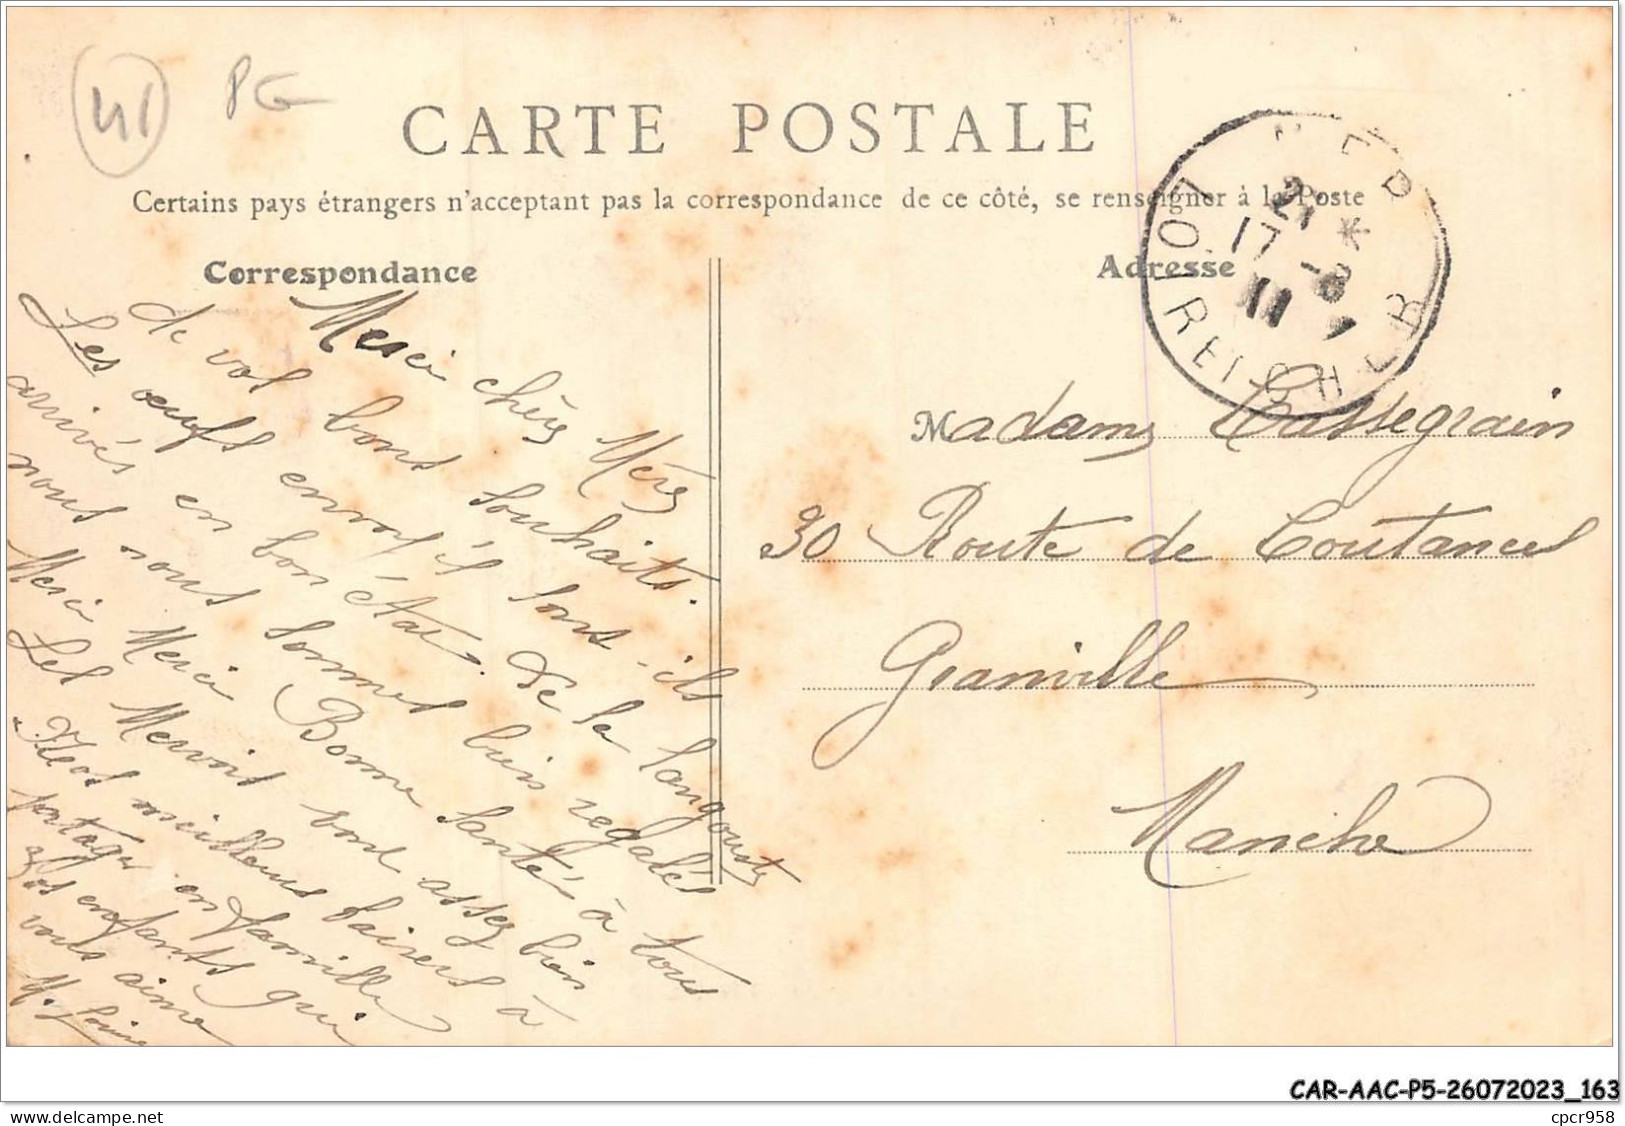 41
PG
CARTE POSTALE
Certains pays étrangers n'acceptant pas la correspondance de ce côté, se renseigner à la Poste
Correspondance
Adresse
LOIR ET CHER
21
17 -8
11
Merci chère Mère
de vos bons souhaits.
Les œufs envoi il sont-ils
arrivés en bon état. De la langouste
nous nous sommes bien regalés
Merci Merci Bonne santé à tous
Les Mervoit sont assez bien
meilleurs baisers à
partager en famille
Vos enfants qui
vous aime
Madame Cassegrain
30 Route de Coutances
Granville
Manche
CAR-AAC-P5-26072023_163
delcampe.net
cpcr958